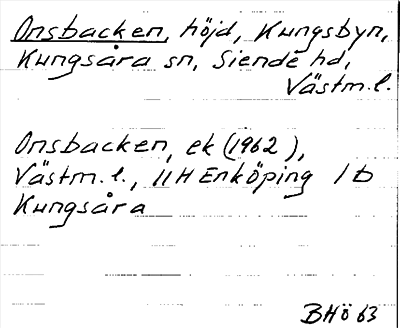 Onsbacken, höjd, Kungsbyn,
Kungsåra sn, Siende hd,
Västm.l.
Onsbacken, ek (1962),
Västm.l., 11H Enköping 1b
Kungsåra
BHö 63